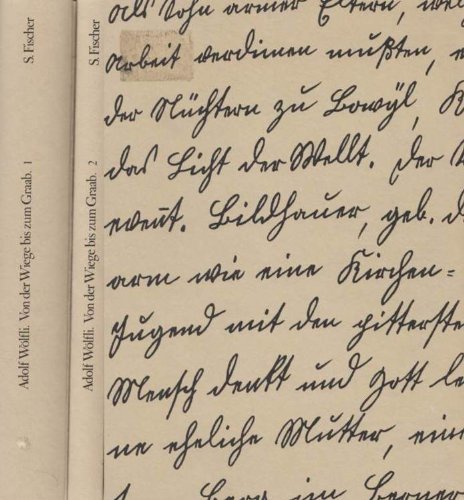 Adolf Wölfli. Von der Wiege bis zum Graab. 1
S. Fischer
Adolf Wölfli. Von der Wiege bis zum Graab. 2
S. Fischer
als Sohn armer Eltern,
arbeit verdienen mußten,
der Nüchtern zu Bowÿl,
das Licht der Wellt. Der
event. Bildhauer, geb.
arm wie eine Kirchen=
Jugend mit den pitterste
Mensch denkt und Gott le
ne eheliche Mutter, eine
Berg im Berner